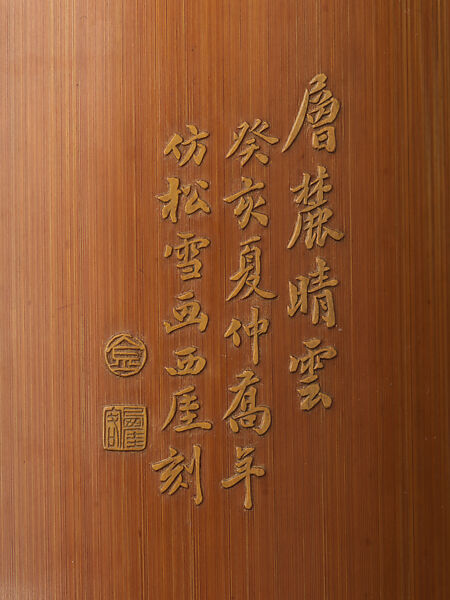 層麓晴雲
癸亥夏仲喬年
仿松雪画西厓刻
金